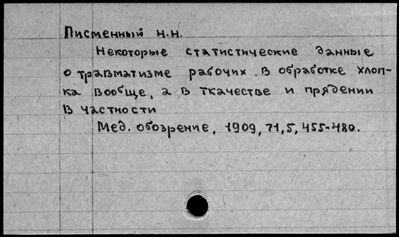 Писменный Н.Н.
Некоторые статистические данные
о травматизме рабочих в обработке хлоп-
ка вообще, а в ткачестве и прядении
в частности
Мед. обозрение, 1909, 71, 5, 455-480.